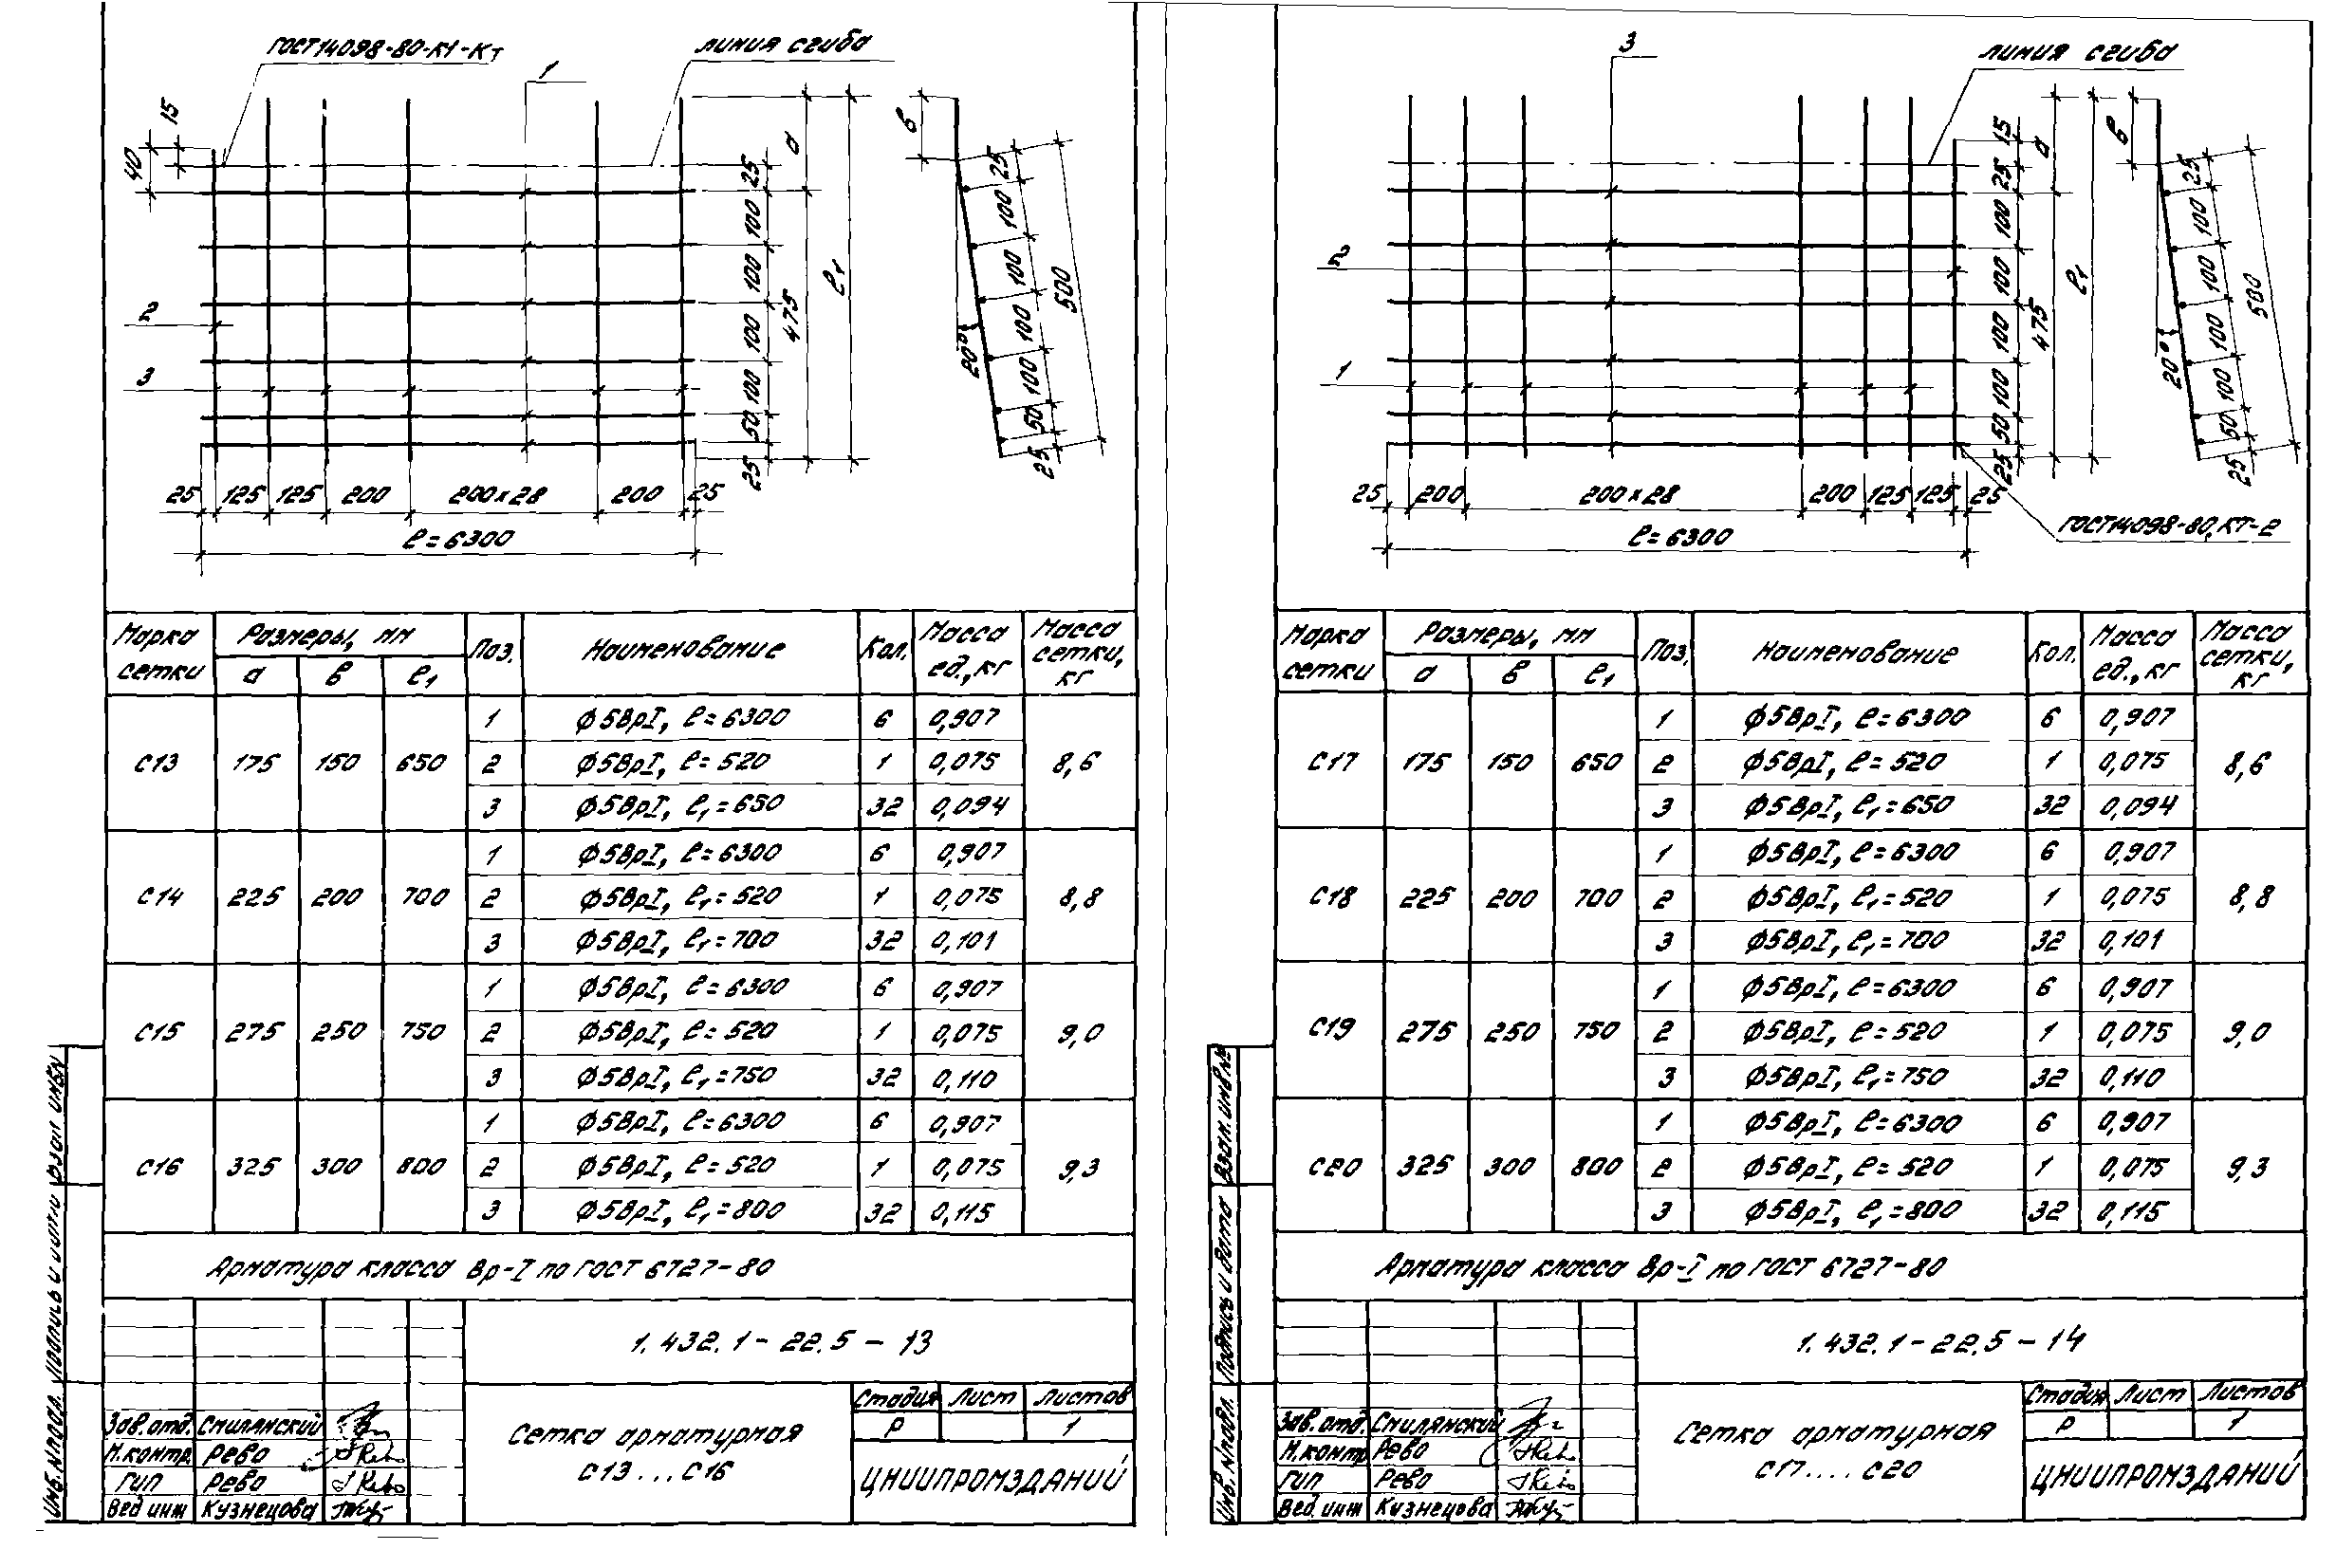 ГОСТ14098-80-К1-Кт
линия сгиба
1
15
40
2
3
а
25
100
100
100
100
50
25
475
ℓ₁
в
25
100
100
100
100
50
25
500
20°
25 125 125 200 200х28 200 25
ℓ=6300
Марка сетки Размеры, мм Поз. Наименование Кол. Масса ед., кг Масса сетки, кг
а в ℓ₁
1 ф5ВрI, ℓ=6300 6 0,907
С13 175 150 650 2 ф5ВрI, ℓ=520 1 0,075 8,6
3 ф5ВрI, ℓ₁=650 32 0,094
1 ф5ВрI, ℓ=6300 6 0,907
С14 225 200 700 2 ф5ВрI, ℓ₁=520 1 0,075 8,8
3 ф5ВрI, ℓ₁=700 32 0,101
1 ф5ВрI, ℓ=6300 6 0,907
С15 275 250 750 2 ф5ВрI, ℓ=520 1 0,075 9,0
3 ф5ВрI, ℓ₁=750 32 0,110
1 ф5ВрI, ℓ=6300 6 0,907
С16 325 300 800 2 ф5ВрI, ℓ=520 1 0,075 9,3
3 ф5ВрI, ℓ₁=800 32 0,115
Арматура класса Вр-I по ГОСТ 6727-80
1.432.1-22.5-13
Стадия Лист Листов
Р 1
Зав.отд. Смилянский
Н.контр Рево
ГИП Рево
Вед инж Кузнецова
Сетка арматурная
С13...С16
ЦНИИПРОМЗДАНИЙ
3
линия сгиба
2
1
15
25
100
100
100
100
50
25
а
475
ℓ₁
в
25
100
100
100
100
50
25
500
20°
25 200 200х28 200 125 125 25
ГОСТ14098-80.КТ-2
ℓ=6300
Марка сетки Размеры, мм Поз. Наименование Кол. Масса ед., кг Масса сетки, кг
а в ℓ₁
1 ф5ВрI, ℓ=6300 6 0,907
С17 175 150 650 2 ф5ВрI, ℓ=520 1 0,075 8,6
3 ф5ВрI, ℓ₁=650 32 0,094
1 ф5ВрI, ℓ=6300 6 0,907
С18 225 200 700 2 ф5ВрI, ℓ₁=520 1 0,075 8,8
3 ф5ВрI, ℓ₁=700 32 0,101
1 ф5ВрI, ℓ=6300 6 0,907
С19 275 250 750 2 ф5ВрI, ℓ=520 1 0,075 9,0
3 ф5ВрI, ℓ₁=750 32 0,110
1 ф5ВрI, ℓ=6300 6 0,907
С20 325 300 800 2 ф5ВрI, ℓ=520 1 0,075 9,3
3 ф5ВрI, ℓ₁=800 32 0,115
Арматура класса Вр-I по ГОСТ 6727-80
1.432.1-22.5-14
Стадия Лист Листов
Р 1
Зав.отд. Смилянский
Н.контр Рево
ГИП Рево
Вед.инж Кузнецова
Сетка арматурная
С17....С20
ЦНИИПРОМЗДАНИЙ
Инв.№подл. Подпись и дата Взам.инв.№